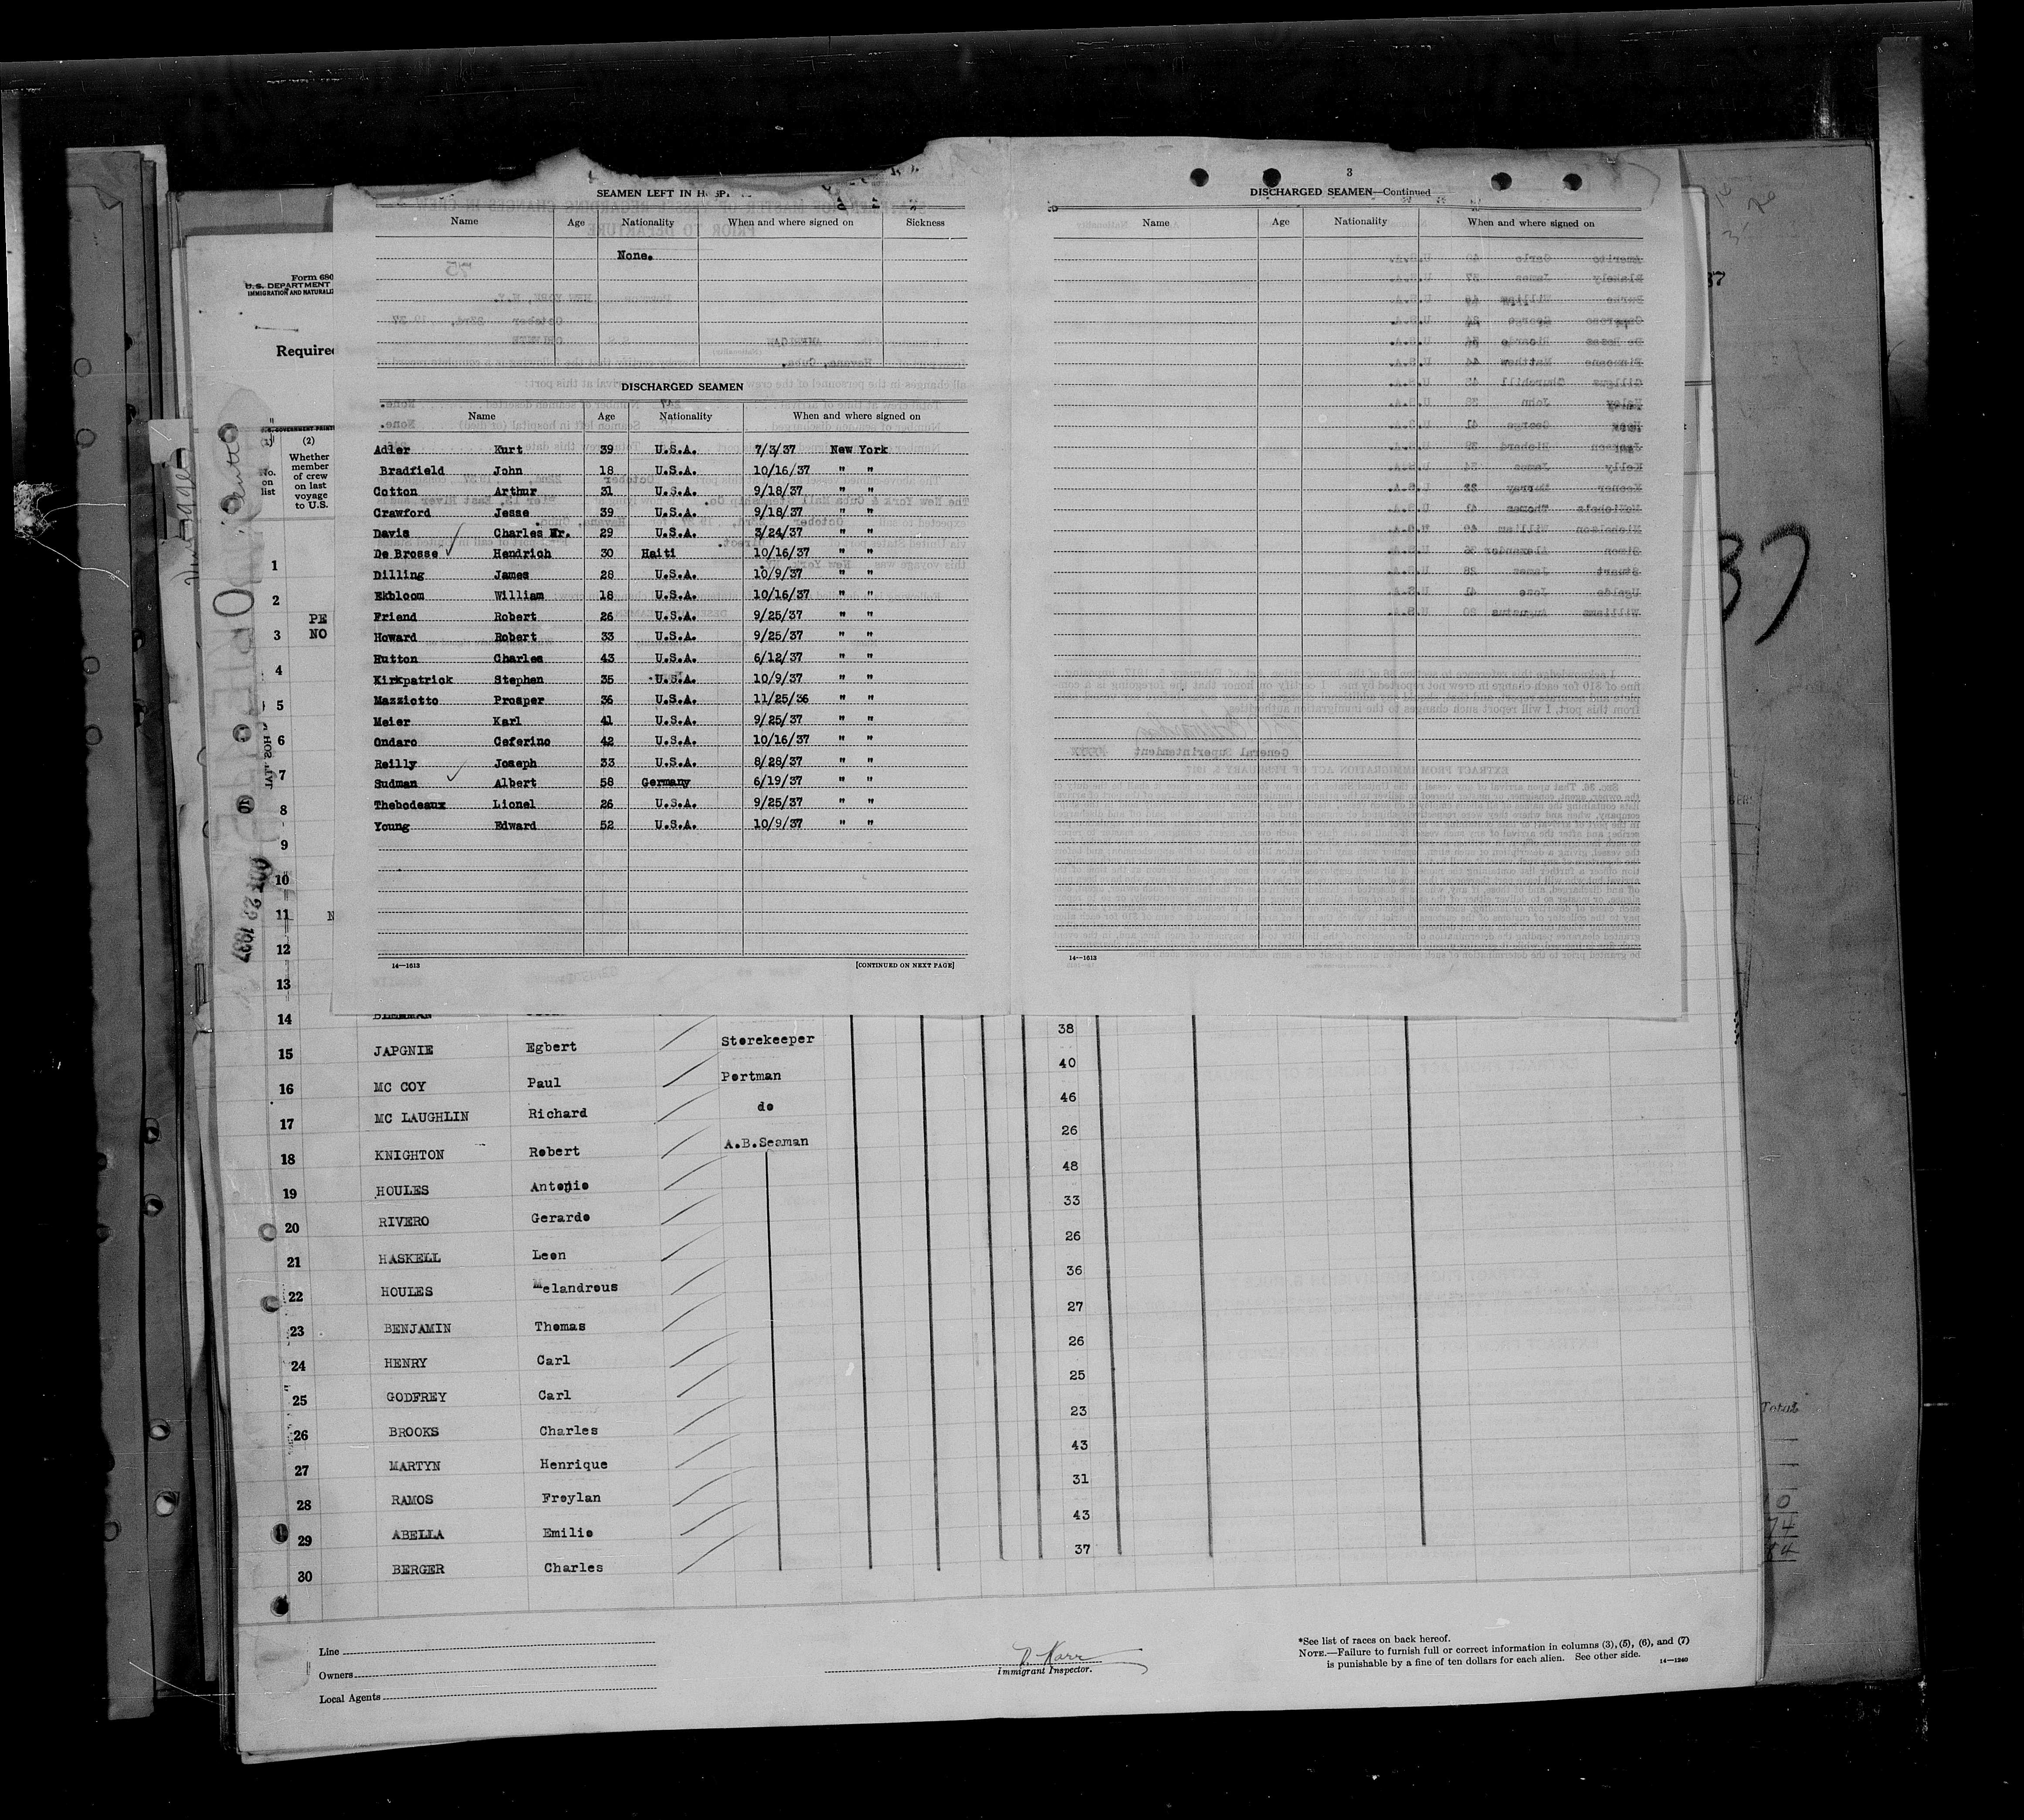 SEAMEN LEFT IN
Name Age Nationality When and where signed on Sickness
None.
DISCHARGED SEAMEN
Name Age Nationality When and where signed on
Adler Kurt 39 U.S.A. 7/3/37 New York
Bradfield John 18 U.S.A. 10/16/37 " "
Cotton Arthur 31 U.S.A. 9/18/37 " "
Crawford Jesse 39 U.S.A. 9/18/37 " "
Davis Charles Wr. 29 U.S.A. 3/24/37 " "
De Brosse Hendrich 30 Haiti 10/16/37 " "
Dilling James 28 U.S.A. 10/9/37 " "
Ekbloom William 18 U.S.A. 10/16/37 " "
Friend Robert 26 U.S.A. 9/25/37 " "
Howard Robert 33 U.S.A. 9/25/37 " "
Hutton Charles 43 U.S.A. 6/12/37 " "
Kirkpatrick Stephen 35 U.S.A. 10/9/37 " "
Mazziotto Prosper 36 U.S.A. 11/25/36 " "
Meier Karl 41 U.S.A. 9/25/37 " "
Ondaro Ceferino 42 U.S.A. 10/16/37 " "
Reilly Joseph 33 U.S.A. 8/28/37 " "
Sudman Albert 58 Germany 6/19/37 " "
Thebodeaux Lionel 26 U.S.A. 9/25/37 " "
Young Edward 52 U.S.A. 10/9/37 " "
14—1613 [CONTINUED ON NEXT PAGE]
3
DISCHARGED SEAMEN—Continued
Name Age Nationality When and where signed on
14—1613
Form 680
U.S. DEPARTMENT
IMMIGRATION AND NATURALIZ
Required
(2)
No. on list
Whether member of crew on last voyage to U.S.
1
2
PE
3 NO
4
5
6
7
8
9
10
11 N
12
13
14
38
15 JAPGNIE Egbert Storekeeper
40
16 MC COY Paul Portman
46
17 MC LAUGHLIN Richard do
26
18 KNIGHTON Robert A.B.Seaman
48
19 HOULES Antonio
33
20 RIVERO Gerardo
26
21 HASKELL Leon
36
22 HOULES Melandrous
27
23 BENJAMIN Thomas
26
24 HENRY Carl
25
25 GODFREY Carl
23
26 BROOKS Charles
43
27 MARTYN Henrique
31
28 RAMOS Froylan
43
29 ABELLA Emilio
37
30 BERGER Charles
Line
Owners
Local Agents
Immigrant Inspector.
*See list of races on back hereof.
NOTE.—Failure to furnish full or correct information in columns (3), (5), (6), and (7)
is punishable by a fine of ten dollars for each alien. See other side. 14—1240
37
Total